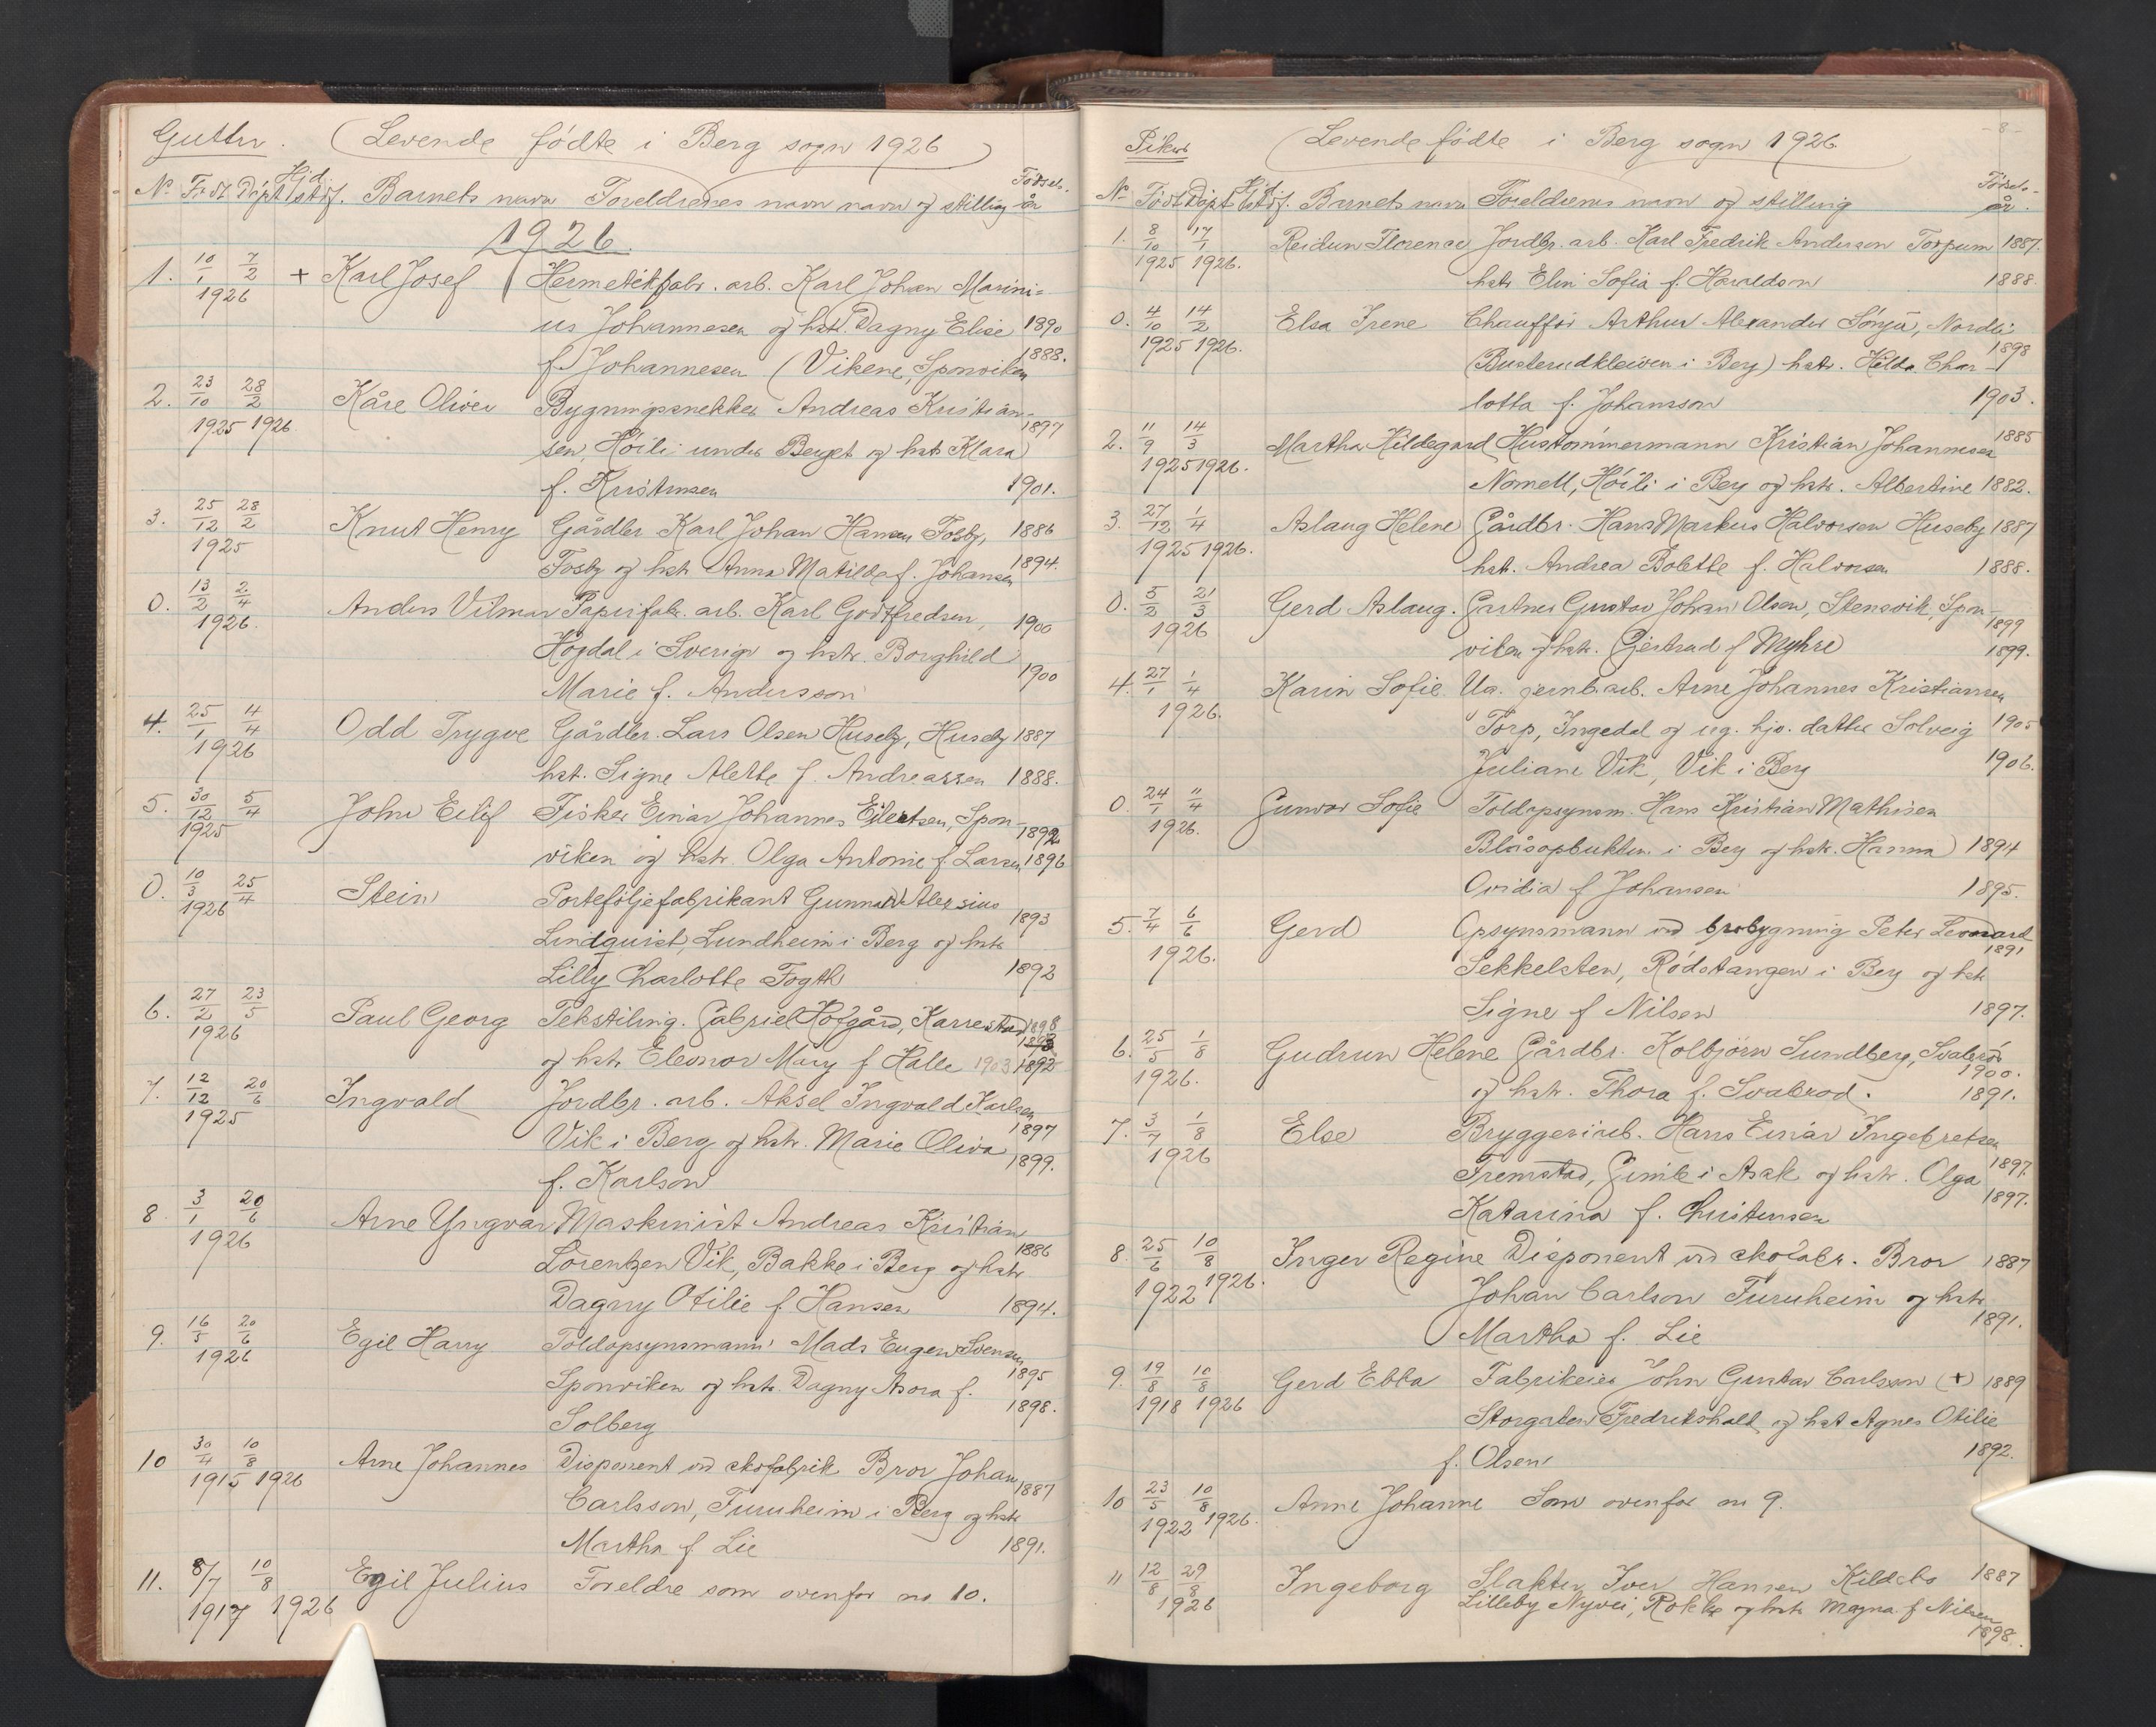 Gutter. (Levende fødte i Berg sogn 1926)
No Født Døpt Hjd. stdf. Barnets navn Foreldrenes navn navn og stilling Fødsels- år
1926.
1. 10/1 7/2 + Karl Josef Hermetikfabr. arb. Karl Johan Marini-
1926 us Johannesen og hstr. Dagny Elise 1890
f. Johannesen (Vikene, Sponviken 1888.
2. 23/10 28/2 Kåre Oliver Bygningssnekker Andreas Kristian-
1925 1926 sen, Høili under Berget og hstr Klara 1897
f. Kristensen 1901.
3. 25/12 28/2 Knut Henry Gårdbr Karl Johan Hansen Fosby, 1886
1925 Fosby og hstr Anna Matilde f. Johansen 1894.
0. 13/2 2/4 Anders Vilmar Papirfabr. arb. Karl Godtfredsen, 1900
1926. Högdal i Sverige og hstr. Borghild
Marie f. Andersson 1900
4. 25/1 4/4 Odd Trygve Gårdbr. Lars Olsen Huseby, Huseby 1887
1926 hst. Signe Alette f. Andreassen 1888.
5. 30/12 5/4 John Eilif Fisker Einar Johannes Eilertsen, Spon- 1892
1925 viken og hstr. Olga Antonie f. Larsen 1896
0. 10/3 25/4 Stein Porteføljefabrikant Gunnar Alexius 1893
1926 Lindquist, Lundheim i Berg og hstr
Lilly Charlotte Fogth 1892
6. 27/2 23/5 Paul Georg Tekstiling. Gabriel Hofgård, Karrestad 1898
1926 og hstr Eleonor Mary f Halle 1903 1892
7. 12/12 20/6 Ingvald Jordbr. arb. Aksel Ingvald Karlsen
1925 Vik i Berg og hstr. Marie Oliva 1897
f. Karlson 1899.
8 3/1 20/6 Arne Yngvar Maskinist Andreas Kristian
1926 Lorentzen Vik, Bakke i Berg og hstr 1886
Dagny Otilie f. Hansen 1894.
9. 16/5 20/6 Egil Harry Toldopsynsmann Mads Eugen Svensen
1926 Sponviken og hstr. Dagny Asora f. 1895
Solberg 1898.
10 30/4 10/8 Arne Johannes Disponent ved skofabrik Bror Johan
1915 1926 Carlsson, Furuheim i Berg og hstr 1887
Martha f. Lie 1891.
11. 8/7 10/8 Egil Julius Foreldre som ovenfor no 10.
1917 1926
-8-
Piker (Levende fødte i Berg sogn 1926
No Født Døpt Hjd. stdf. Barnets navn Foreldrenes navn og stilling Fødsels- år.
1. 8/10 17/1 Reidun Florence Jordbr. arb. Karl Fredrik Anderson Torpum 1887.
1925 1926. hstr Elin Sofia f. Haraldson 1888.
0. 4/10 14/2 Elsa Irene Chauffør Arthur Alexander Sönjä, Nordli
1925 1926. (Busterudkleiven i Berg) hstr. Hilda Char- 1898
lotta f. Johansson 1903.
2. 11/9 14/3 Martha Hildegard Hustømmermann Kristian Johannesen 1885
1925 1926. Nomell, Høili i Berg og hstr. Albertine 1882.
3. 27/12 1/4 Aslaug Helene Gårdbr. Hans Markus Halvorsen Huseby 1887
1925 1926. hst. Andrea Bolette f. Halvorsen 1888.
0. 5/2 21/3 Gerd Aslaug. Gartner Gustav Johan Olsen, Stensvik, Spon-
1926 viken og hstr. Gjertrud f Myhre 1899 1899.
4. 27/1 1/4 Karin Sofie Ug. jernb. arb. Arne Johannes Kristiansen
1926. Torp, Ingedal og ug. hjv. datter Solveig 1905
Juliane Vik, Vik i Berg 1906.
0. 24/1 11/4 Gunvor Sofie Toldopsynsm. Hans Kristian Mathisen
1926. Blåsopbukten i Berg og hstr. Hanna 1894
Ovidia f Johansen 1895.
5. 7/4 6/6 Gerd Opsynsmann ved brobygning Peter Leonard
1926. Sekkelsten, Rødstangen i Berg og hstr 1891
Signe f Nilsen 1897.
6. 25/5 1/8 Gudrun Helene Gårdbr. Kolbjørn Sundberg, Svalerød
1926. og hstr. Thora f. Svalerød. 1900. 1891.
7. 3/7 1/8 Else Bryggeriarb. Hans Einar Ingebretsen
1926 Fremstad, Gimle i Asak og hstr. Olga 1897.
Katarina f. Christensen 1897.
8. 25/6 10/8 Inger Regine Disponent ved skofabr. Bror 1887
1922 1926. Johan Carlson Furuheim og hstr
Martha f. Lie 1891.
9. 19/8 10/8 Gerd Ebba Fabrikeier John Gustav Carlsson (+) 1889
1918 1926 Storgaten Fredrikshald og hst Agnes Otilie
f. Olsen 1892.
10 23/5 10/8 Anne Johanne Som ovenfor no 9.
1922 1926.
11 12/8 29/8 Ingeborg Slakter Iver Hansen Kildebo 1887
1926 Lilleby Nyvei, Rokke og hstr Magna f Nilsen
1898.